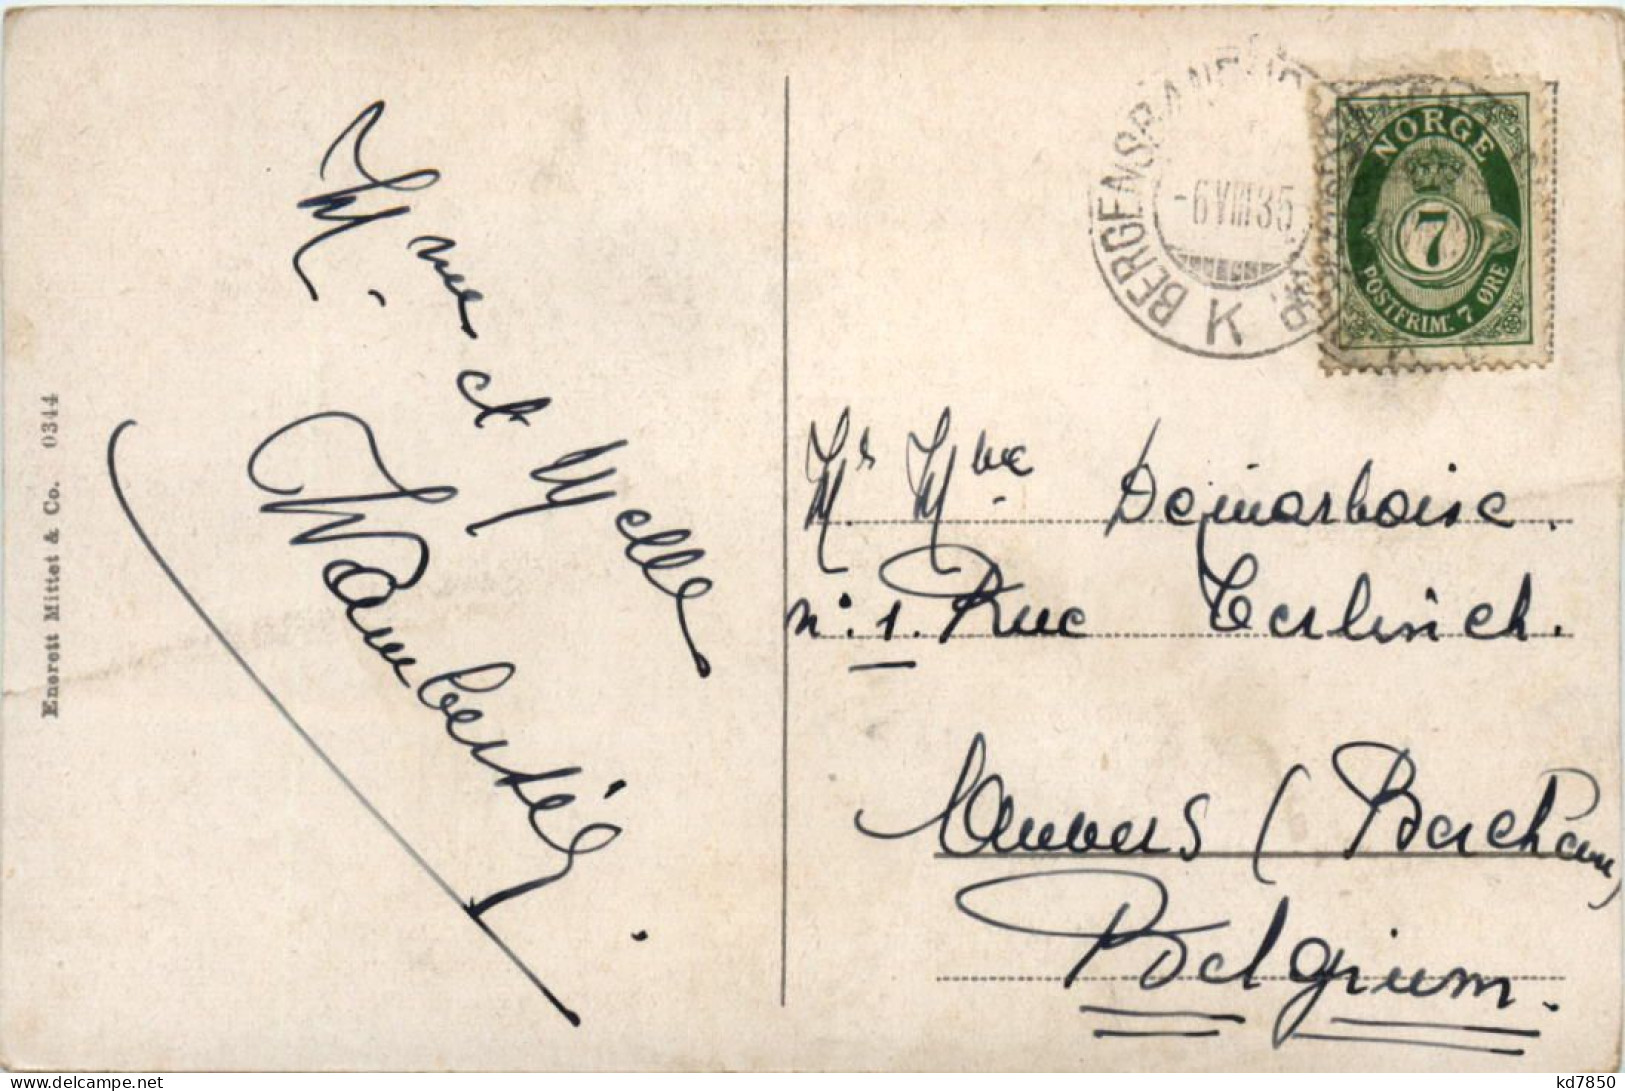 M. Mme et Melle
Wambersie.
Enerett Mittet & Co. 0344
BERGENSBANEN
-6 VIII 35
K
NORGE
7
POSTFRIM. 7 ØRE
Mr. Mme. Demarbaise.
n: 1. Rue Terlinck.
Anvers (Berchem)
Belgium.
kd7850